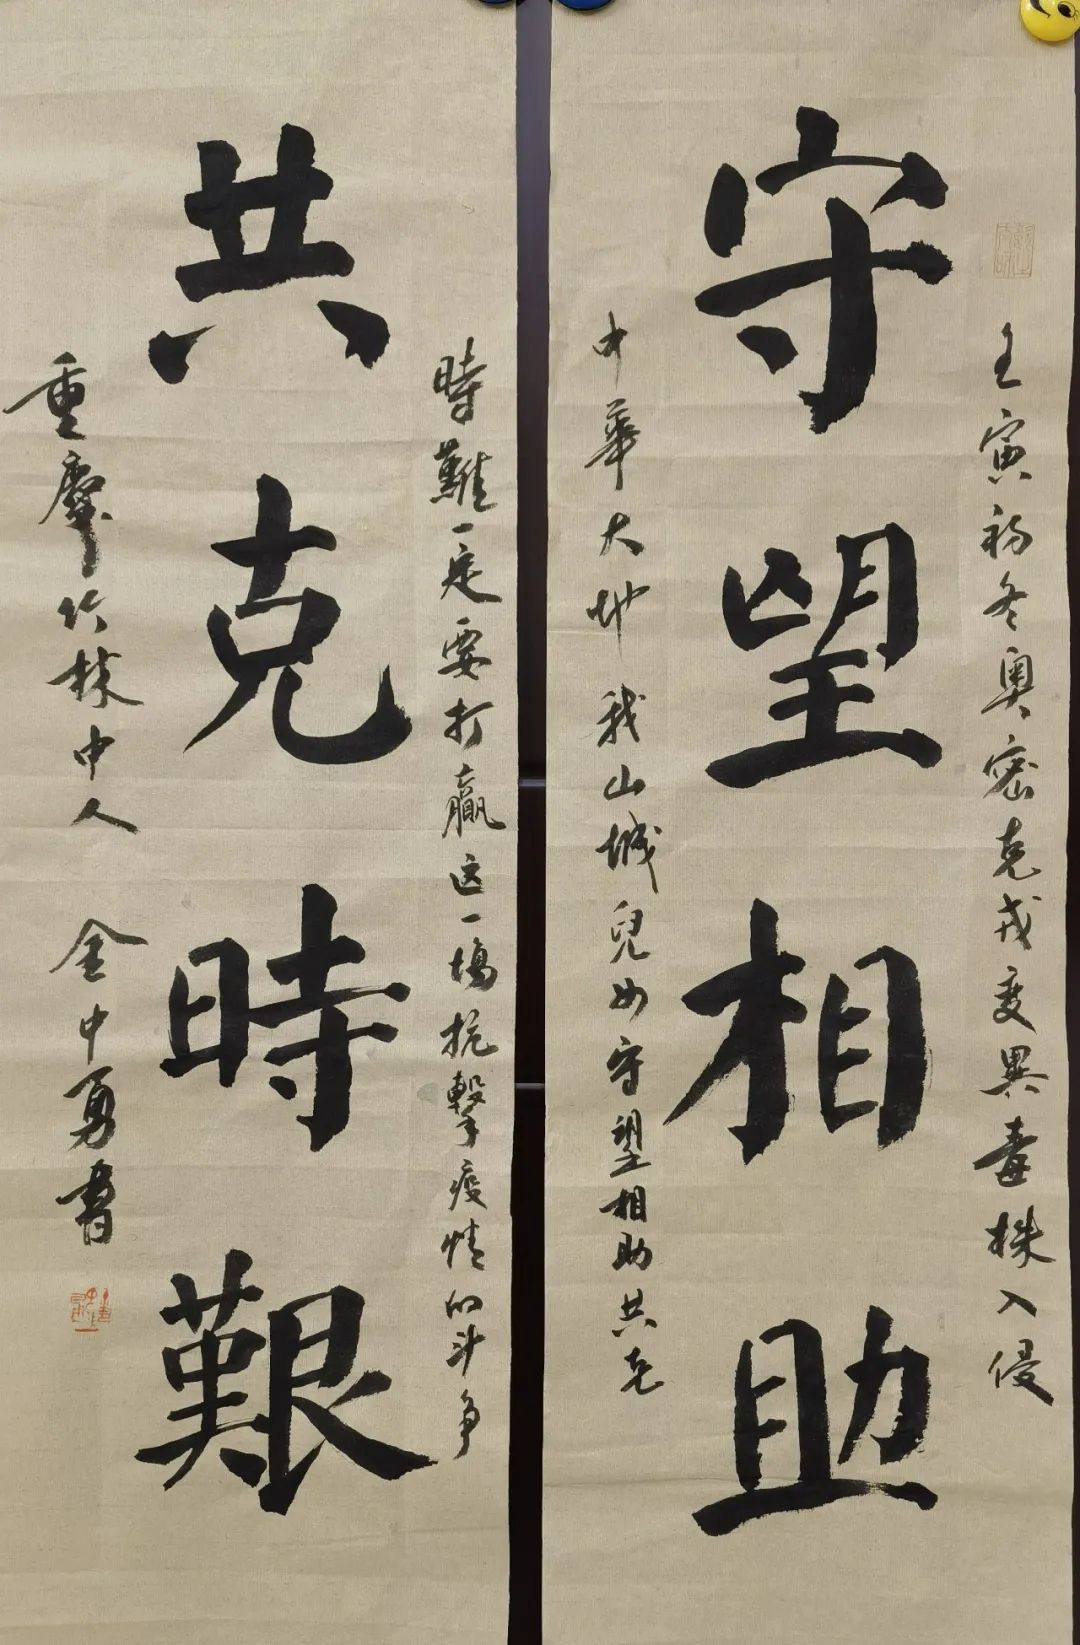 守望相助
壬寅初冬奥密克戎变異毒株入侵
中華大地我山城兒女守望相助共克
共克時艱
時難一定要打赢这一場抗擊疫情的斗争
重慶竹林中人 金中勇書